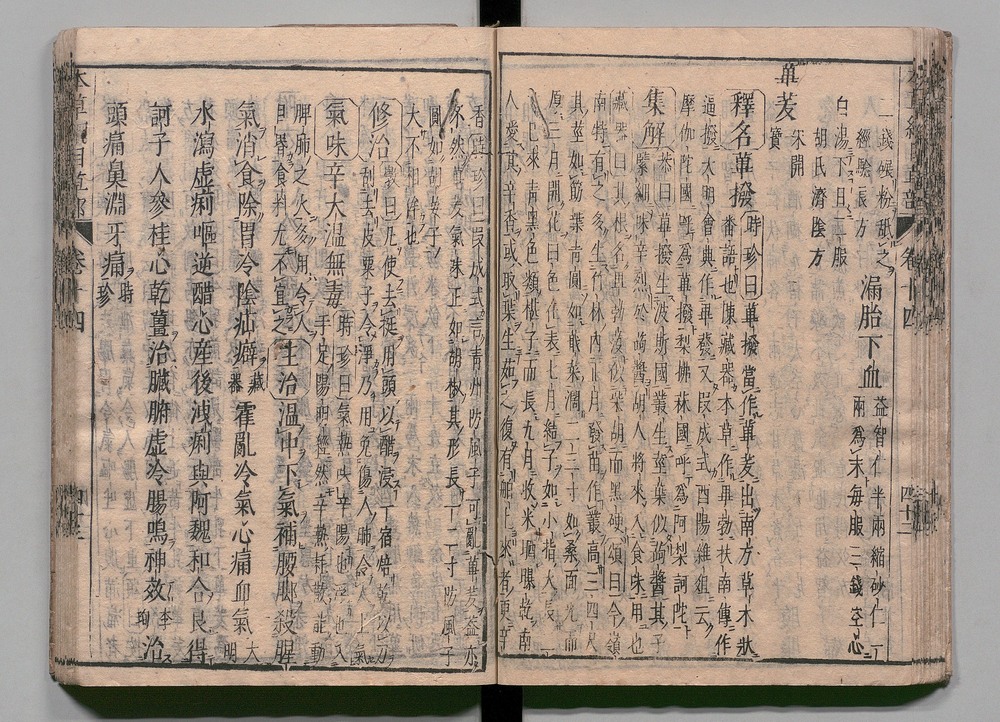 二錢候粉舐之 漏胎下血 益智仁半兩縮砂仁一
經驗良方 兩爲末每服三錢空心
白湯下日二服
胡氏濟陰方
蓽茇 宋開寶
釋名 蓽撥 時珍曰蓽撥當作蓽茇出南方草木狀
番語也陳藏器本草作畢勃扶南傳作
逼撥大明會典作畢發又段成式酉陽雜俎云
摩伽陀國呼爲蓽撥梨拂林國呼爲阿梨訶陀
集解 恭曰蓽撥生波斯國叢生莖葉似蒟醬其子
緊細味辛烈於蒟醬胡人將來入食味用也
藏器曰其根名畢勃没似柴胡而黑硬頌曰今嶺
南特有之多生竹林内正月發苗作叢高三四尺
其莖如筯葉青圓如蕺菜闊二三寸如桑面光而
厚三月開花白色在表七月結子如小指大長二
寸已來青黑色類椹子而長九月收采灰曝乾南
人愛其辛香或取葉生茹之復有舶上來者更辛
香時珍曰段成式言青州防風子可亂蓽茇蓋亦
不然蓽茇氣味正如胡椒其形長一二寸防風子
圓如胡荽子
大不相侔也
修治 斅曰凡使去挺用頭以醋浸一宿焙乾以刀
刮去皮粟子令淨乃用免傷人肺令人上氣
氣味 辛大温無毒 時珍曰氣熱味辛陽也浮也入
手足陽明經然辛熱耗散能動
脾肺之火多用令人
目昏食料尤不宜之
主治 温中下氣補腰脚殺腥
氣消食除胃冷陰疝癖 藏器 霍亂冷氣心痛血氣 大明
水瀉虚痢嘔逆醋心産後洩痢與阿魏和合良得
訶子人參桂心乾薑治臟腑虚冷腸鳴神效 李珣 治
頭痛鼻淵牙痛 時珍
本草綱目草部 卷十四